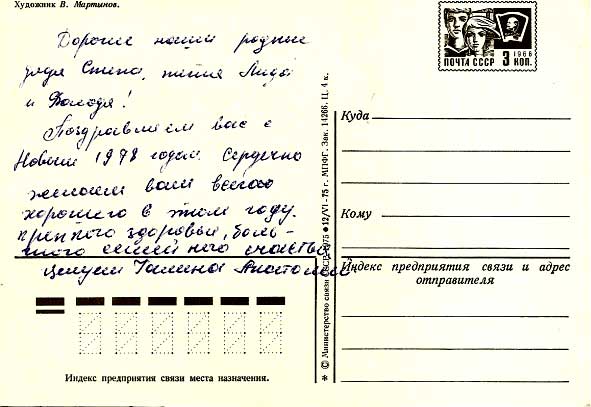 Художник В. Мартынов.
Дорогие наши родные
дядя Степа, тётя Лида
и Володя!
Поздравляем вас с
Новым 1978 годом. Сердечно
желаем вам всего
хорошего в этом году.
крепкого здоровья, боль-
шого семейного счастья
целуем Галина Анатолий
ПОЧТА СССР 3 КОП. 1966
Куда
Кому
Индекс предприятия связи и адрес
отправителя
Индекс предприятия связи места назначения.
* © Министерство связи СССР 1975 ◆ 12/VI-75 г. МПФГ. Зак. 14266. Ц. 4 к.